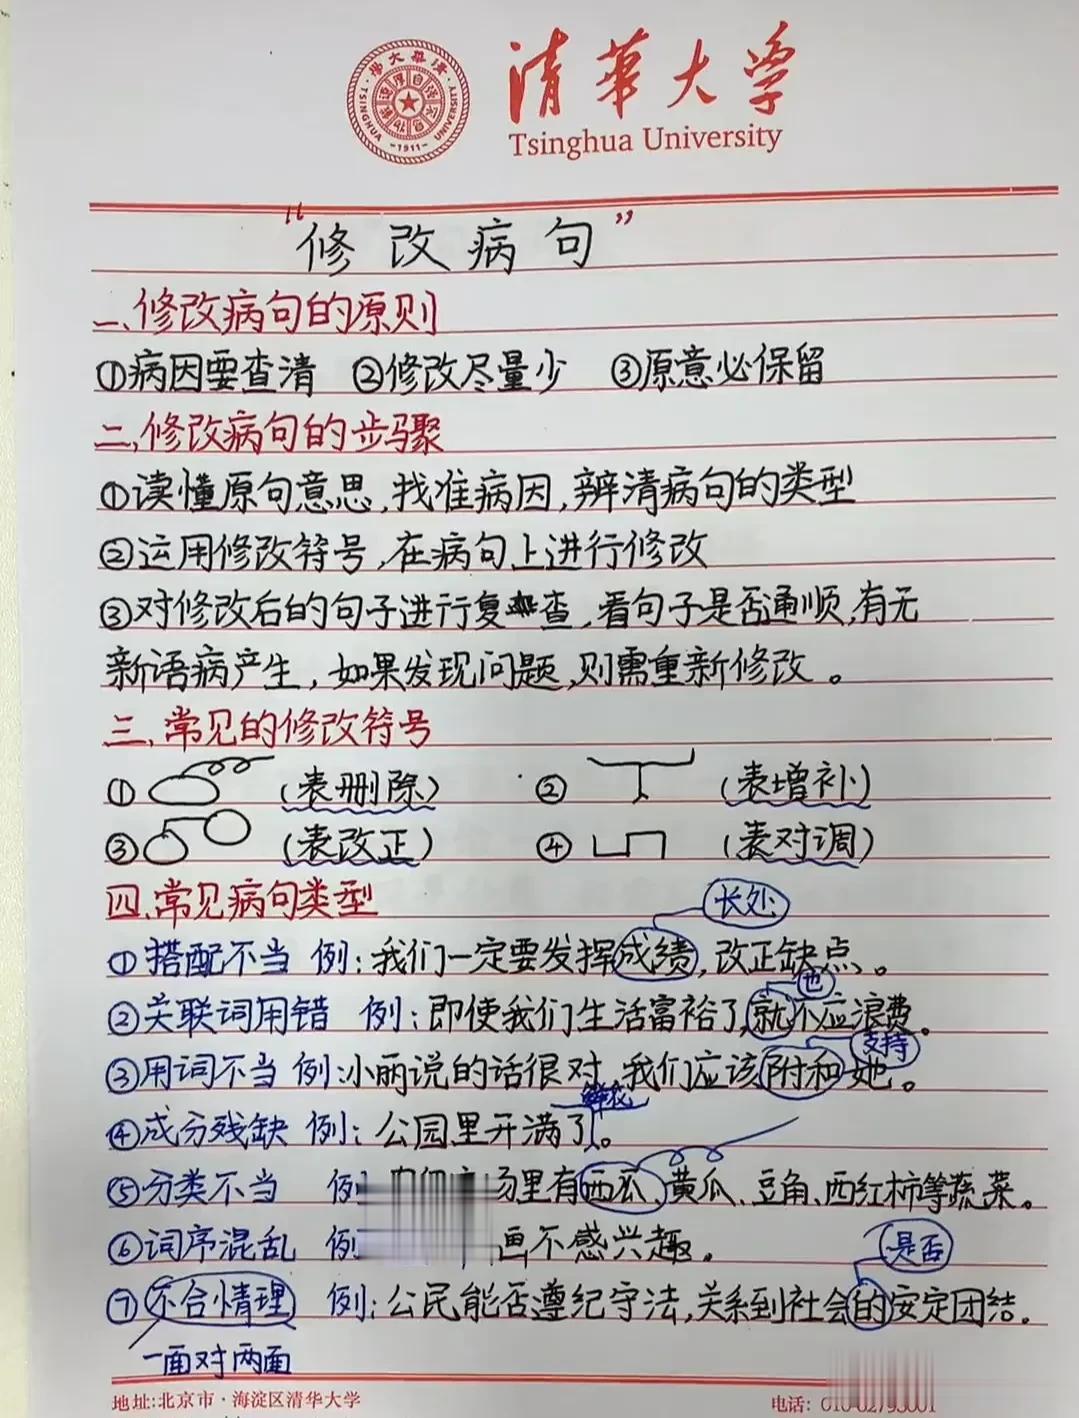 清華大学
Tsinghua University
“修改病句”
一、修改病句的原则
①病因要查清 ②修改尽量少 ③原意必保留
二、修改病句的步骤
①读懂原句意思,找准病因,辨清病句的类型
②运用修改符号,在病句上进行修改
③对修改后的句子进行复查,看句子是否通顺,有无
新语病产生,如果发现问题,则需重新修改。
三、常见的修改符号
① (表删除) ② (表增补)
③ (表改正) ④ (表对调)
四、常见病句类型
长处
①搭配不当 例:我们一定要发挥成绩,改正缺点。
也
②关联词用错 例:即使我们生活富裕了,就不应浪费。
支持
③用词不当 例:小丽说的话很对,我们应该附和她。
鲜花
④成分残缺 例:公园里开满了。
⑤分类不当 例 里有西瓜、黄瓜、豆角、西红柿等蔬菜。
⑥词序混乱 例 画不感兴趣。
是否
⑦不合情理 例:公民能否遵纪守法,关系到社会的安定团结。
一面对两面
地址:北京市·海淀区清华大学
电话: